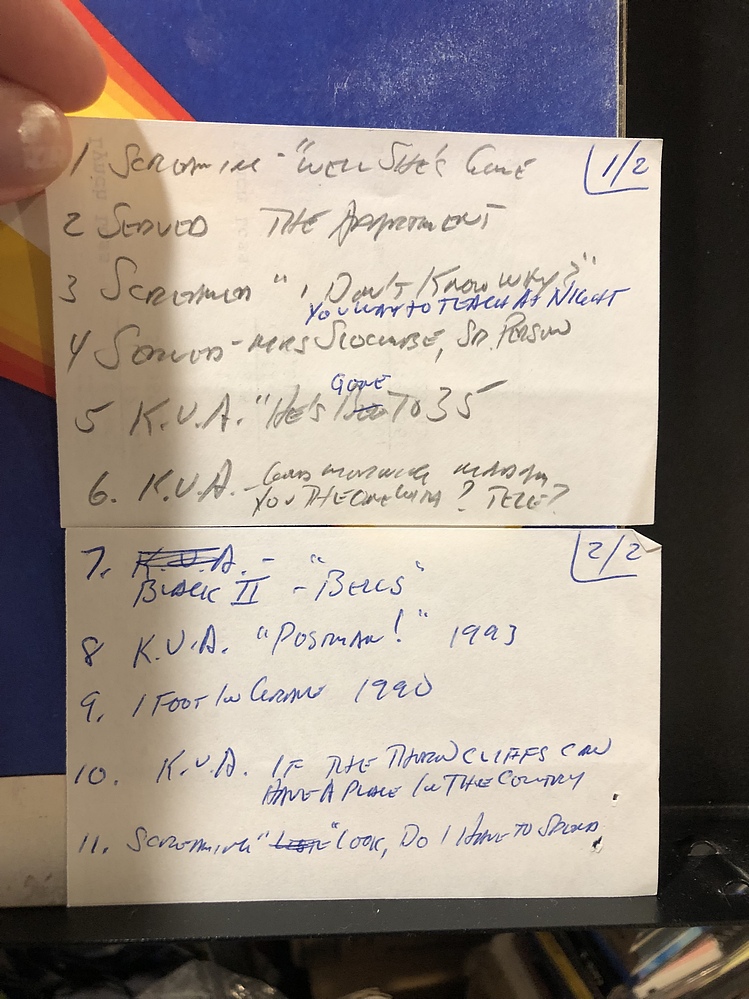 1 SCREAMING - "WELL SHE'S GONE
1/2
2 SERVED THE APARTMENT
3 SCREAMING " I DON'T KNOW WHY?"
YOU HAVE TO TEACH AT NIGHT
4 SERVED - MRS SLOCOMBE, SR. PERSON
GONE
5 K.U.A. "HE'S TO 35
6. K.U.A. - GOOD MORNING MADAM
YOU THE ONE WITH ? TELE?
7. K.U.A. - "
2/2
BLACK II - "BELLS"
8 K.U.A. "POSTMAN!" 1993
9. 1 FOOT IN GRAVE 1990
10. K.U.A. IF THE THORNCLIFFS CAN
HAVE A PLACE IN THE COUNTRY
11. SCREAMING " "LOOK, DO I HAVE TO SPEND